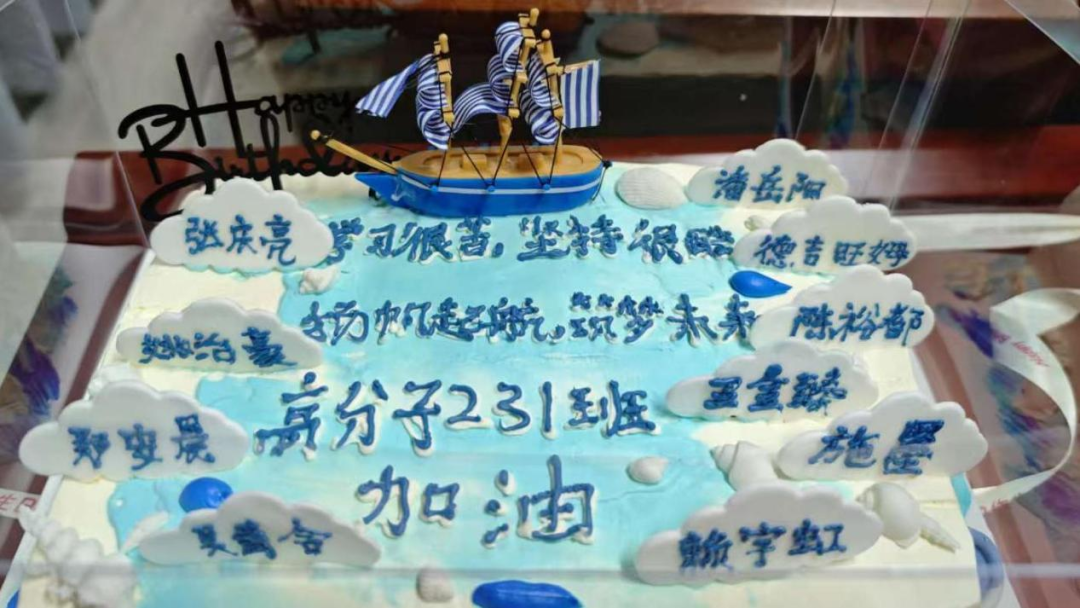 Happy
Birthday
潘岳阳
张庆亮
学习很苦,坚持很酷
德吉旺姆
扬帆起航,筑梦未来
陈裕都
姚治豪
高分子231班
郑安晨
施墨
加油
赖宇虹